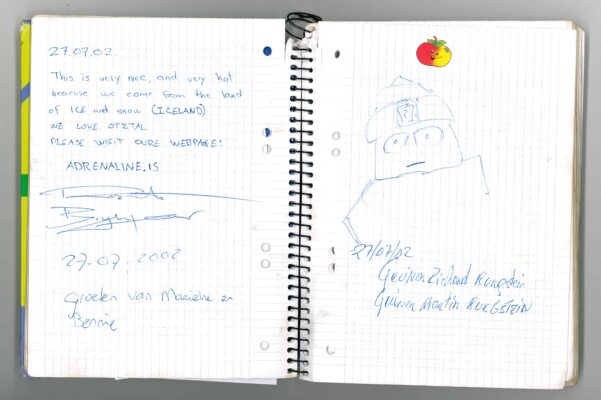 27.07.02.
This is very nice, and very hot
because we come from the land
of ICE and snow (ICELAND)
WE LOVE OTZTAL
PLEASE VISIT OURE WEBPAGE:
ADRENALINE.IS
27.07.2002
Groeten van Marieke en
Bennie
27/07/02
Martin